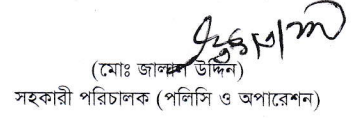 (মোঃ জালাল উদ্দিন)
সহকারী পরিচালক (পলিসি ও অপারেশন)